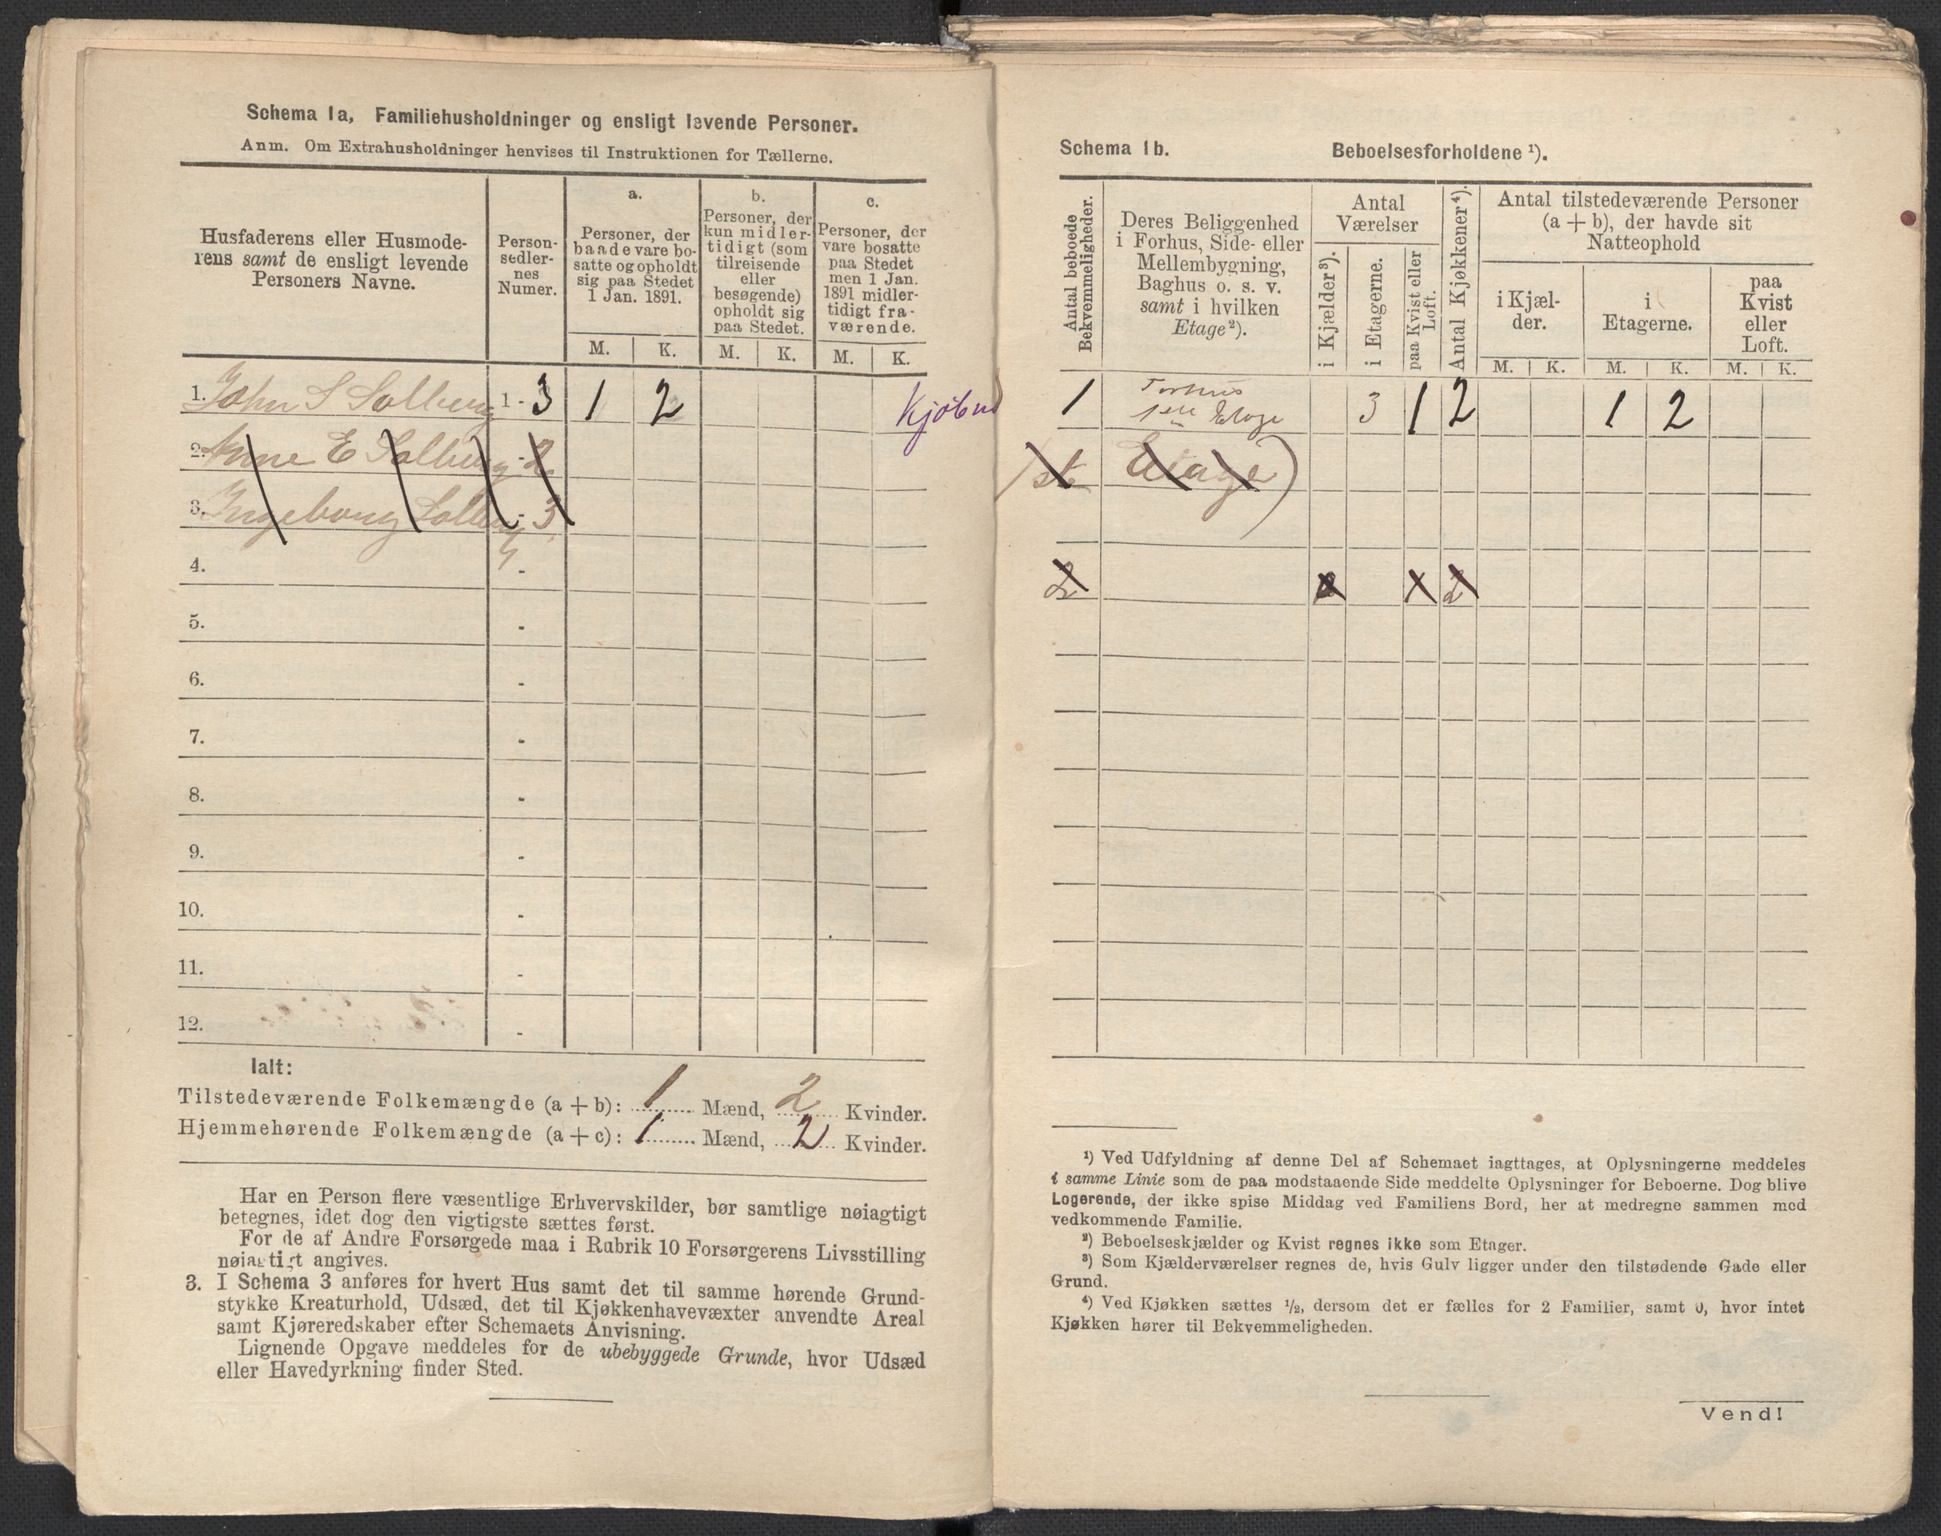 Schema 1a, Familiehusholdninger og ensligt levende Personer.
Anm. Om Extrahusholdninger henvises til Instruktionen for Tællerne.
Husfaderens eller Husmode-
rens samt de ensligt levende
Personers Navne.
Person-
sedler-
nes
Numer.
a.
Personer, der
baade vare bo-
satte og opholdt
sig paa Stedet
1 Jan. 1891.
b.
Personer, der
kun midler-
tidigt (som
tilreisende
eller
besøgende)
opholdt sig
paa Stedet.
c.
Personer, der
vare bosatte
paa Stedet
men 1 Jan.
1891 midler-
tidigt fra-
værende.
M. K. M. K. M. K.
1. John S Solberg 1 - 3 1 2 Kjøbnd
2. Anne E Solberg - 2
3. Ingeborg Solberg - 3
4. -
5. -
6. -
7. -
8. -
9. -
10. -
11. -
12. -
Ialt:
Tilstedeværende Folkemængde (a + b): 1 Mænd, 2 Kvinder.
Hjemmehørende Folkemængde (a + c): 1 Mænd, 2 Kvinder.
Har en Person flere væsentlige Erhvervskilder, bør samtlige nøiagtigt
betegnes, idet dog den vigtigste sættes først.
For de af Andre Forsørgede maa i Rubrik 10 Forsørgerens Livsstilling
nøiagtigt angives.
3. I Schema 3 anføres for hvert Hus samt det til samme hørende Grund-
stykke Kreaturhold, Udsæd, det til Kjøkkenhavevæxter anvendte Areal
samt Kjøreredskaber efter Schemaets Anvisning.
Lignende Opgave meddeles for de ubebyggede Grunde, hvor Udsæd
eller Havedyrkning finder Sted.
Schema 1b. Beboelsesforholdene ¹).
Antal beboede
Bekvemmeligheder.
Deres Beliggenhed
i Forhus, Side- eller
Mellembygning,
Baghus o. s. v.
samt i hvilken
Etage ²).
Antal
Værelser
i Kjælder ³).
i Etagerne.
paa Kvist eller
Loft.
Antal Kjøkkener ⁴).
Antal tilstedeværende Personer
(a + b), der havde sit
Natteophold
i Kjæl-
der.
i
Etagerne.
paa
Kvist
eller
Loft.
M. K. M. K. M. K.
1 Forhus
1ste Etage 3 1 2 1 2
1st Etage)
2 2
¹) Ved Udfyldning af denne Del af Schemaet iagttages, at Oplysningerne meddeles
i samme Linie som de paa modstaaende Side meddelte Oplysninger for Beboerne. Dog blive
Logerende, der ikke spise Middag ved Familiens Bord, her at medregne sammen med
vedkommende Familie.
²) Beboelseskjælder og Kvist regnes ikke som Etager.
³) Som Kjælderværelser regnes de, hvis Gulv ligger under den tilstødende Gade eller
Grund.
⁴) Ved Kjøkken sættes ½, dersom det er fælles for 2 Familier, samt 0, hvor intet
Kjøkken hører til Bekvemmeligheden.
Vend!